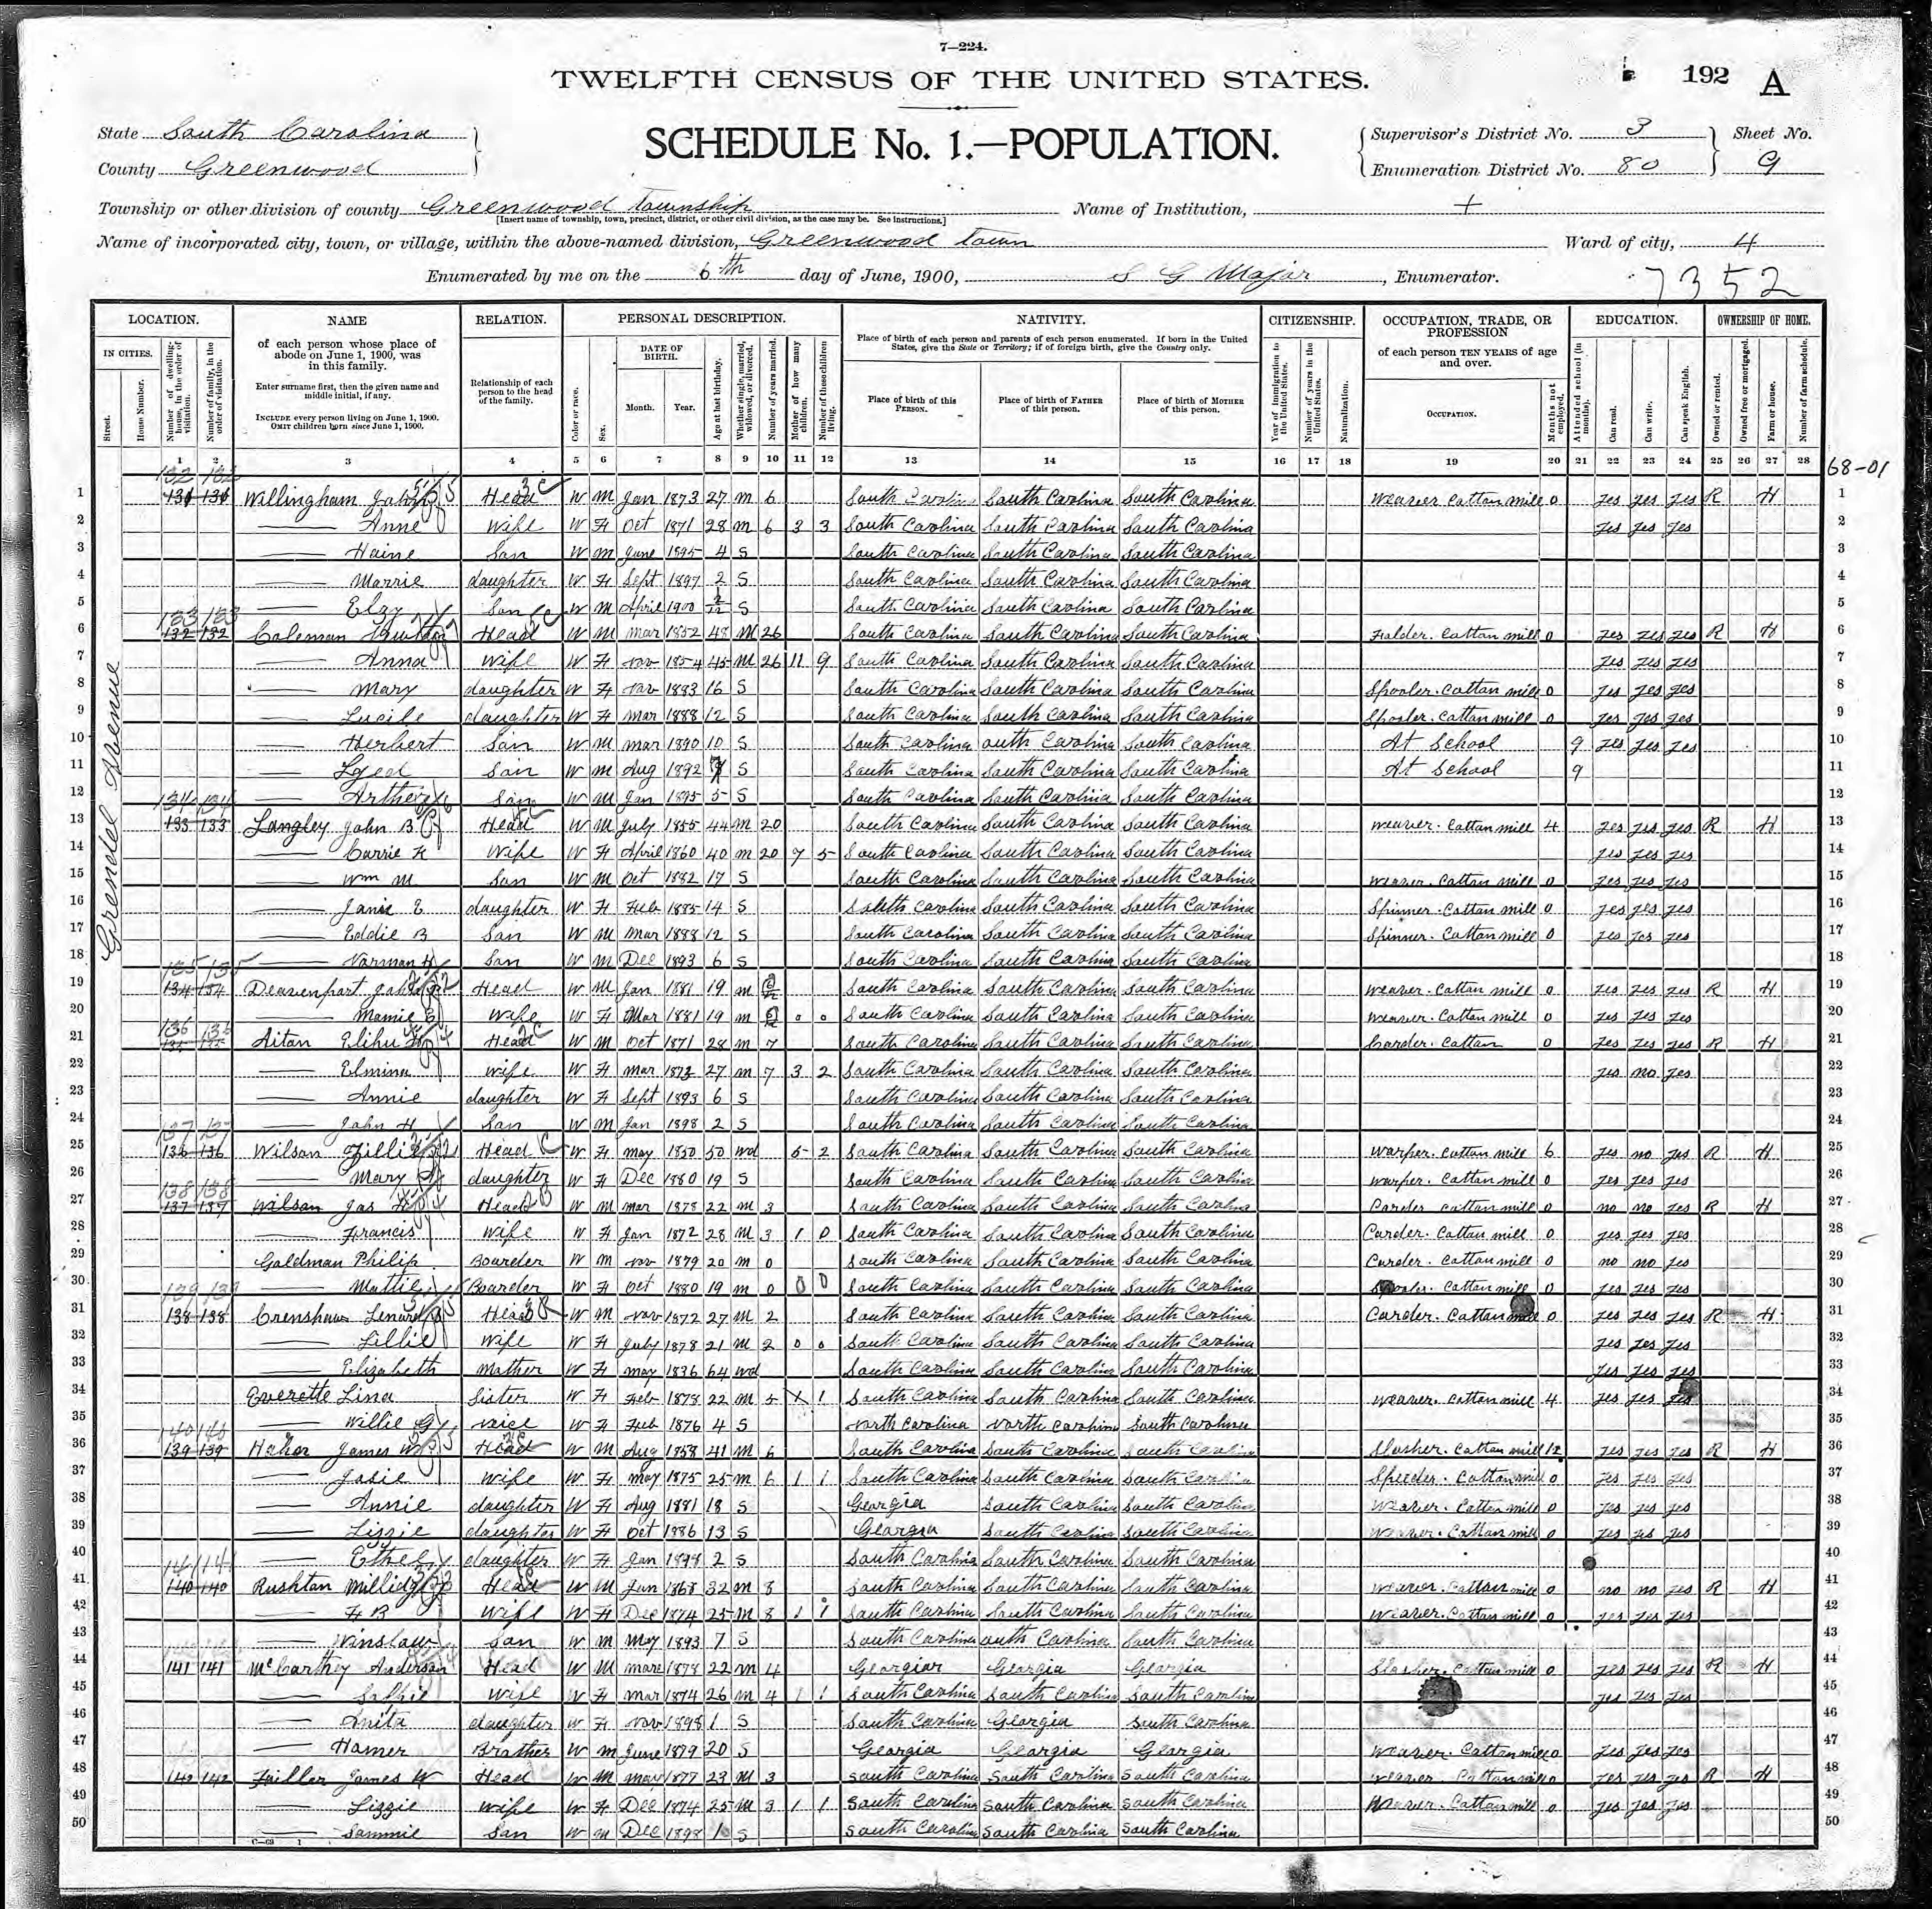 7—224.
TWELFTH CENSUS OF THE UNITED STATES.
192 A
State South Carolina
County Greenwood
SCHEDULE No. 1.—POPULATION.
Supervisor's District No. 3
Enumeration District No. 80
Sheet No. 9
Township or other division of county Greenwood township
[Insert name of township, town, precinct, district, or other civil division, as the case may be. See instructions.]
Name of Institution, +
Name of incorporated city, town, or village, within the above-named division, Greenwood town
Ward of city, 4
Enumerated by me on the 6th day of June, 1900, S G Major, Enumerator.
7352
LOCATION. NAME RELATION. PERSONAL DESCRIPTION. NATIVITY. CITIZENSHIP. OCCUPATION, TRADE, OR PROFESSION EDUCATION. OWNERSHIP OF HOME.
IN CITIES. Street. House Number. Number of dwelling-house, in the order of visitation. Number of family, in the order of visitation.
of each person whose place of abode on June 1, 1900, was in this family.
Enter surname first, then the given name and middle initial, if any.
INCLUDE every person living on June 1, 1900. OMIT children born since June 1, 1900.
Relationship of each person to the head of the family.
Color or race. Sex. DATE OF BIRTH. Month. Year. Age at last birthday. Whether single, married, widowed, or divorced. Number of years married. Mother of how many children. Number of these children living.
Place of birth of each person and parents of each person enumerated. If born in the United States, give the State or Territory; if of foreign birth, give the Country only.
Place of birth of this PERSON. Place of birth of FATHER of this person. Place of birth of MOTHER of this person.
Year of immigration to the United States. Number of years in the United States. Naturalization.
of each person TEN YEARS of age and over.
OCCUPATION. Months not employed.
Attended school (in months). Can read. Can write. Can speak English.
Owned or rented. Owned free or mortgaged. Farm or house. Number of farm schedule.
1 2 3 4 5 6 7 8 9 10 11 12 13 14 15 16 17 18 19 20 21 22 23 24 25 26 27 28
68-01
Grendel Avenue
1 Willingham Head W M Jan 1873 27 m 6 South Carolina South Carolina South Carolina Weaver Cotton mill 0 yes yes yes R H 1
2 Anne Wife W F Oct 1871 28 m 6 3 3 South Carolina South Carolina South Carolina yes yes yes 2
3 Haine Son W M June 1895 4 S South Carolina South Carolina South Carolina 3
4 Marrie daughter W F Sept 1897 2 S South Carolina South Carolina South Carolina 4
5 Elzy Son W M April 1900 2/12 S South Carolina South Carolina South Carolina 5
6 Coleman Head W M Mar 1852 48 M 26 South Carolina South Carolina South Carolina Folder. Cotton mill 0 yes yes yes R H 6
7 Anna Wife W F Nov 1854 45 M 26 11 9 South Carolina South Carolina South Carolina yes yes yes 7
8 Mary daughter W F Nov 1883 16 S South Carolina South Carolina South Carolina Spooler. Cotton mill 0 yes yes yes 8
9 Lucile daughter W F Mar 1888 12 S South Carolina South Carolina South Carolina Spooler. Cotton mill 0 yes yes yes 9
10 Herbert Son W M Mar 1890 10 S South Carolina outh Carolina South Carolina At School 9 yes yes yes 10
11 Son W M Aug 1892 7 S South Carolina South Carolina South Carolina At School 9 11
12 Son W M Jan 1895 5 S South Carolina South Carolina South Carolina 12
13 133 133 Langley John B Head W M July 1855 44 m 20 South Carolina South Carolina South Carolina Weaver. Cotton mill 4 yes yes yes R H 13
14 Carrie K Wife W F April 1860 40 m 20 7 5 South Carolina South Carolina South Carolina yes yes yes 14
15 Wm M Son W M Oct 1882 17 S South Carolina South Carolina South Carolina Weaver. Cotton mill 0 yes yes yes 15
16 Janie E daughter W F Feb 1885 14 S South Carolina South Carolina South Carolina Spinner. Cotton mill 0 yes yes yes 16
17 Eddie B Son W M Mar 1888 12 S South Carolina South Carolina South Carolina Spinner. Cotton mill 0 yes yes yes 17
18 Norman H Son W M Dec 1893 6 S South Carolina South Carolina South Carolina 18
19 134 134 Deavenport Head W M Jan 1881 19 m South Carolina South Carolina South Carolina Weaver. Cotton mill 0 yes yes yes R H 19
20 Mamie Wife W F Mar 1881 19 m 0 0 South Carolina South Carolina South Carolina Weaver. Cotton mill 0 yes yes yes 20
21 Aitan Elihu Head W M Oct 1871 28 m 7 South Carolina South Carolina South Carolina Carder. Cotton 0 yes yes yes R H 21
22 Elmina wife W F Mar 1873 27 m 7 3 2 South Carolina South Carolina South Carolina yes no yes 22
23 Annie daughter W F Sept 1893 6 S South Carolina South Carolina South Carolina 23
24 John H Son W M Jan 1898 2 S South Carolina South Carolina South Carolina 24
25 136 136 Wilson Head W F May 1850 50 wd 5 2 South Carolina South Carolina South Carolina Warper. Cotton mill 6 yes no yes R H 25
26 Mary daughter W F Dec 1880 19 S South Carolina South Carolina South Carolina Warper. Cotton mill 0 yes yes yes 26
27 137 137 Wilson Jas Head W M Mar 1878 22 m 3 South Carolina South Carolina South Carolina Carder Cotton mill 0 no no yes R H 27
28 Francis Wife W F Jan 1872 28 M 3 1 0 South Carolina South Carolina South Carolina Carder. Cotton mill 0 yes yes yes 28
29 Goldman Philip Boarder W M Nov 1879 20 m 0 South Carolina South Carolina South Carolina Carder. Cotton mill 0 no no yes 29
30 Mattie Boarder W F Oct 1880 19 m 0 0 0 South Carolina South Carolina South Carolina Cotton mill 0 yes yes yes 30
31 138 138 Crenshaw Head W M Nov 1872 27 M 2 South Carolina South Carolina South Carolina Carder. Cotton mill 0 yes yes yes R H 31
32 Lillie Wife W F July 1878 21 M 2 0 0 South Carolina South Carolina South Carolina yes yes yes 32
33 Elizabeth Mother W F May 1836 64 wd South Carolina South Carolina South Carolina yes yes yes 33
34 Everette Lina Sister W F Feb 1878 22 M 5 1 1 South Carolina South Carolina South Carolina Weaver. Cotton mill 4 yes yes yes 34
35 Willie G niece W F Feb 1876 4 S North Carolina North Carolina South Carolina 35
36 139 139 James Head W M Aug 1858 41 M 6 South Carolina South Carolina South Carolina Slasher. Cotton mill 12 yes yes yes R H 36
37 Josie Wife W F May 1875 25 m 6 1 1 South Carolina South Carolina South Carolina Speeder. Cotton mill 0 yes yes yes 37
38 Annie daughter W F Aug 1881 18 S Georgia South Carolina South Carolina Weaver. Cotton mill 0 yes yes yes 38
39 Lizzie daughter W F Oct 1886 13 S Georgia South Carolina South Carolina Weaver. Cotton mill 0 yes yes yes 39
40 Ethel daughter W F Jan 1898 2 S South Carolina South Carolina South Carolina 40
41 140 140 Rushton Head W M Jan 1868 32 m 8 South Carolina South Carolina South Carolina Weaver. Cotton mill 0 no no yes R H 41
42 F B Wife W F Dec 1874 25 M 8 1 1 South Carolina South Carolina South Carolina Weaver. Cotton mill 0 yes yes yes 42
43 Winslow Son W M May 1893 7 S South Carolina outh Carolina South Carolina 43
44 141 141 McCarthey Anderson Head W M 1878 22 m 4 Georgia Georgia Georgia Slasher. Cotton mill 0 yes yes yes R H 44
45 Sallie Wife W F Mar 1874 26 m 4 1 1 South Carolina South Carolina South Carolina yes yes yes 45
46 Anita daughter W F Nov 1898 1 S South Carolina Georgia South Carolina 46
47 Homer Brother W M June 1879 20 S Georgia Georgia Georgia Weaver. Cotton mill 0 yes yes yes 47
48 142 142 Fuller James W Head W M May 1877 23 M 3 South Carolina South Carolina South Carolina Weaver Cotton mill 0 yes yes yes R H 48
49 Lizzie Wife W F Dec 1874 25 M 3 1 1 South Carolina South Carolina South Carolina Weaver. Cotton mill 0 yes yes yes 49
50 Sammie Son W M Dec 1898 1 S South Carolina South Carolina South Carolina 50